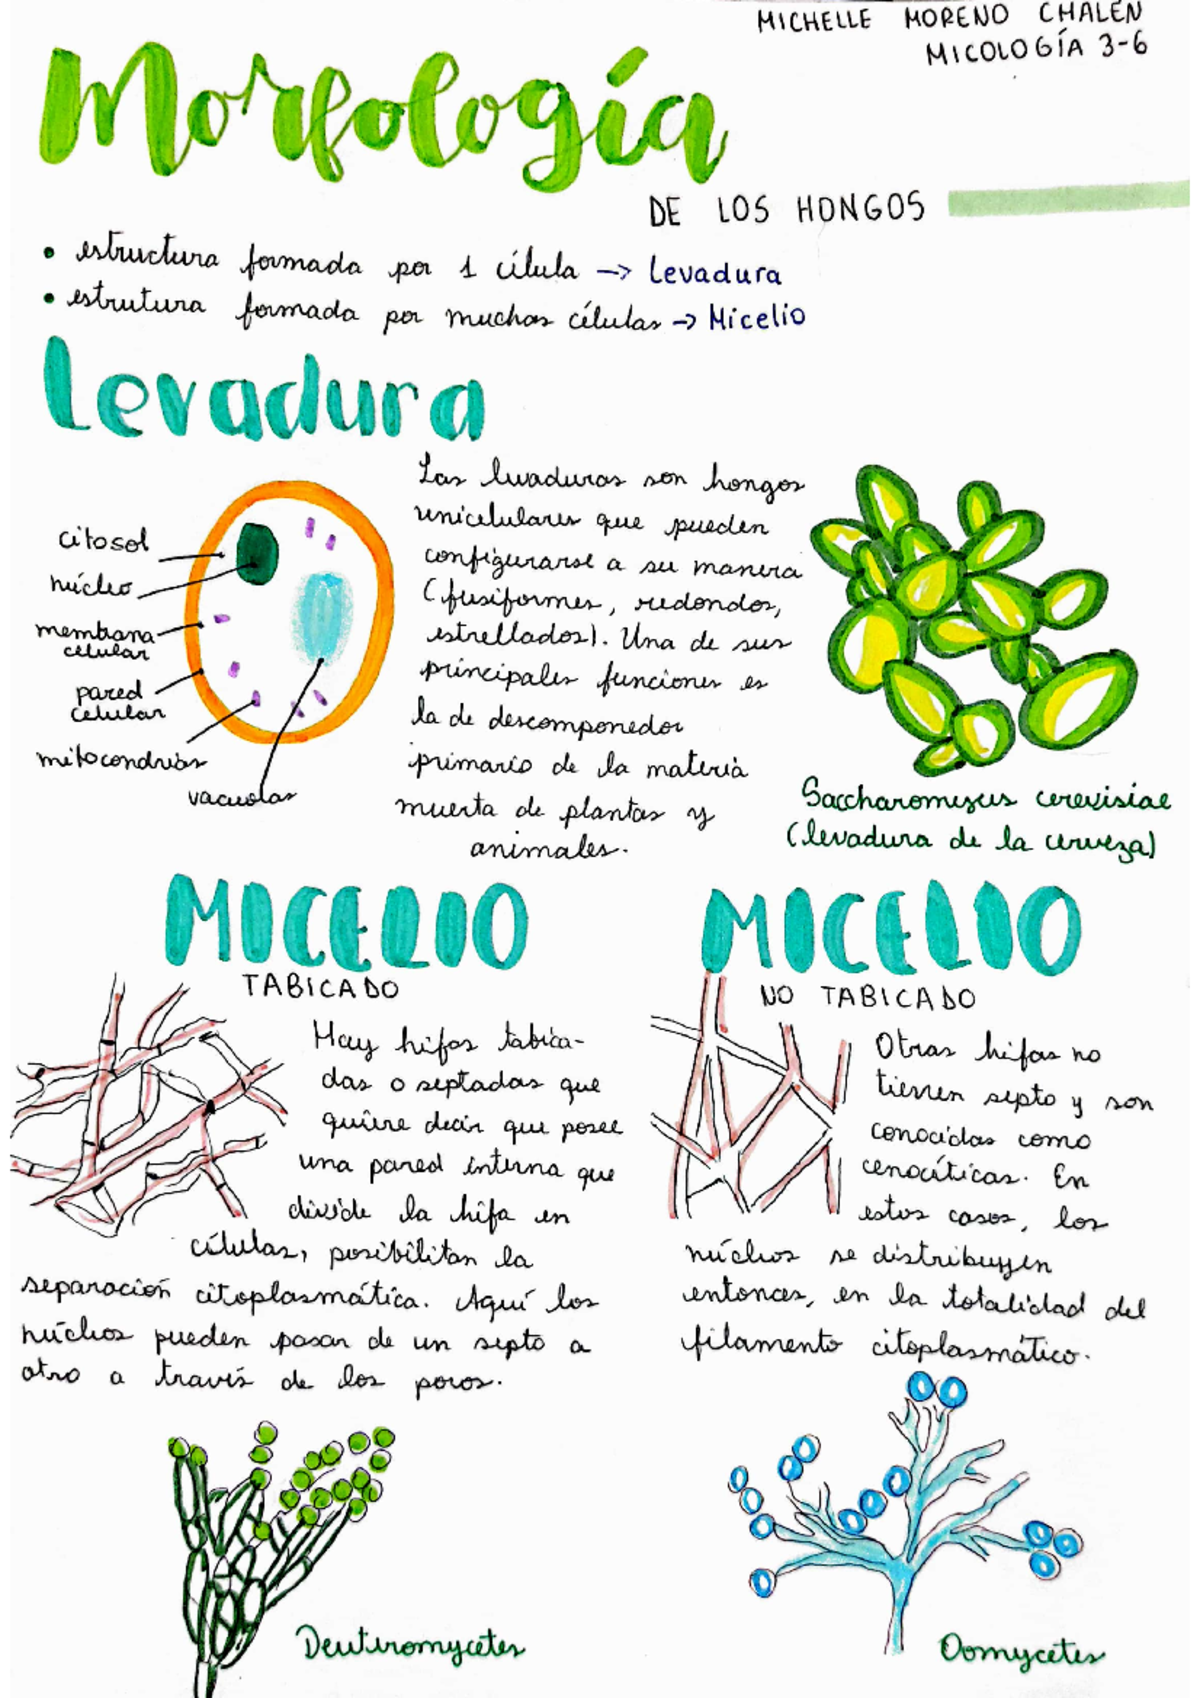 MICHELLE MORENO CHALEN
MICOLOGÍA 3-6
Morfología
DE LOS HONGOS
• estructura formada por 1 célula -> Levadura
• estrutura formada por muchas células -> Micelio
Levadura
citosol
núcleo
membrana
celular
pared
celular
mitocondrias
vacuolas
Las levaduras son hongos
unicelulares que pueden
configurarse a su manera
(fusiformes, redondos,
estrellados). Una de sus
principales funciones es
la de descomponedor
primario de la materia
muerta de plantas y
animales.
Saccharomyces cerevisiae
(levadura de la cerveza)
MICELIO
TABICADO
Hay hifas tabica-
das o septadas que
quiere decir que posee
una pared interna que
divide la hifa en
células, posibilitan la
separación citoplasmática. Aquí los
núcleos pueden pasar de un septo a
otro a través de los poros.
MICELIO
NO TABICADO
Otras hifas no
tienen septo y son
conocidas como
cenocíticas. En
estos casos, los
núcleos se distribuyen
entonces, en la totalidad del
filamento citoplasmático.
Deuteromycetes
Oomycetes